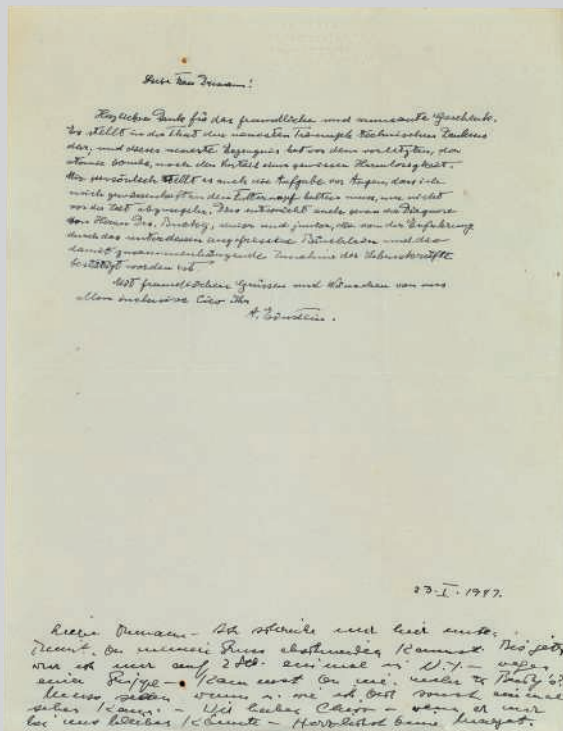 Liebe Frau
Herzlichen Dank für das freundliche und amusante Geschenk.
Es stellt in der That den neuesten Triumph technischen Denkens
dar, und dieses neueste Erzeugnis hat vor dem vorletzten, der
atomic bombe, noch den Vorteil einer gewissen Harmlosigkeit.
Mir persönlich stellt es auch die Aufgabe vor Augen, dass ich
mich gewissenhaft an den halten muss, um nicht
vor der Zeit abzusegeln. Dies entspricht auch genau der Diagnose
von Herrn Drs. Bucky, senior und junior, die von der Erfahrung
durch das unterdessen angefressene Bäuchlein und der
damit zusammenhängende Zunahme der Lebenskräfte
bestätigt worden ist
Mit freundlichen Grüssen und Wünschen von uns
Allen inclusive Chico Ihr
A. Einstein.
23. I. 1947.
Liebe - Ich schreibe nur hier unten,
damit Du meinen Gruss kannst. Bis jetzt
war ich nur auf 2 einmal in N.Y. - wegen
einer Grippe -
sehen wann u. wie ich Dich sonst einmal
sehen kann. - Der liebe Chico - wenn er nur
bei uns bleiben könnte - Herzlichst Deine Margot.